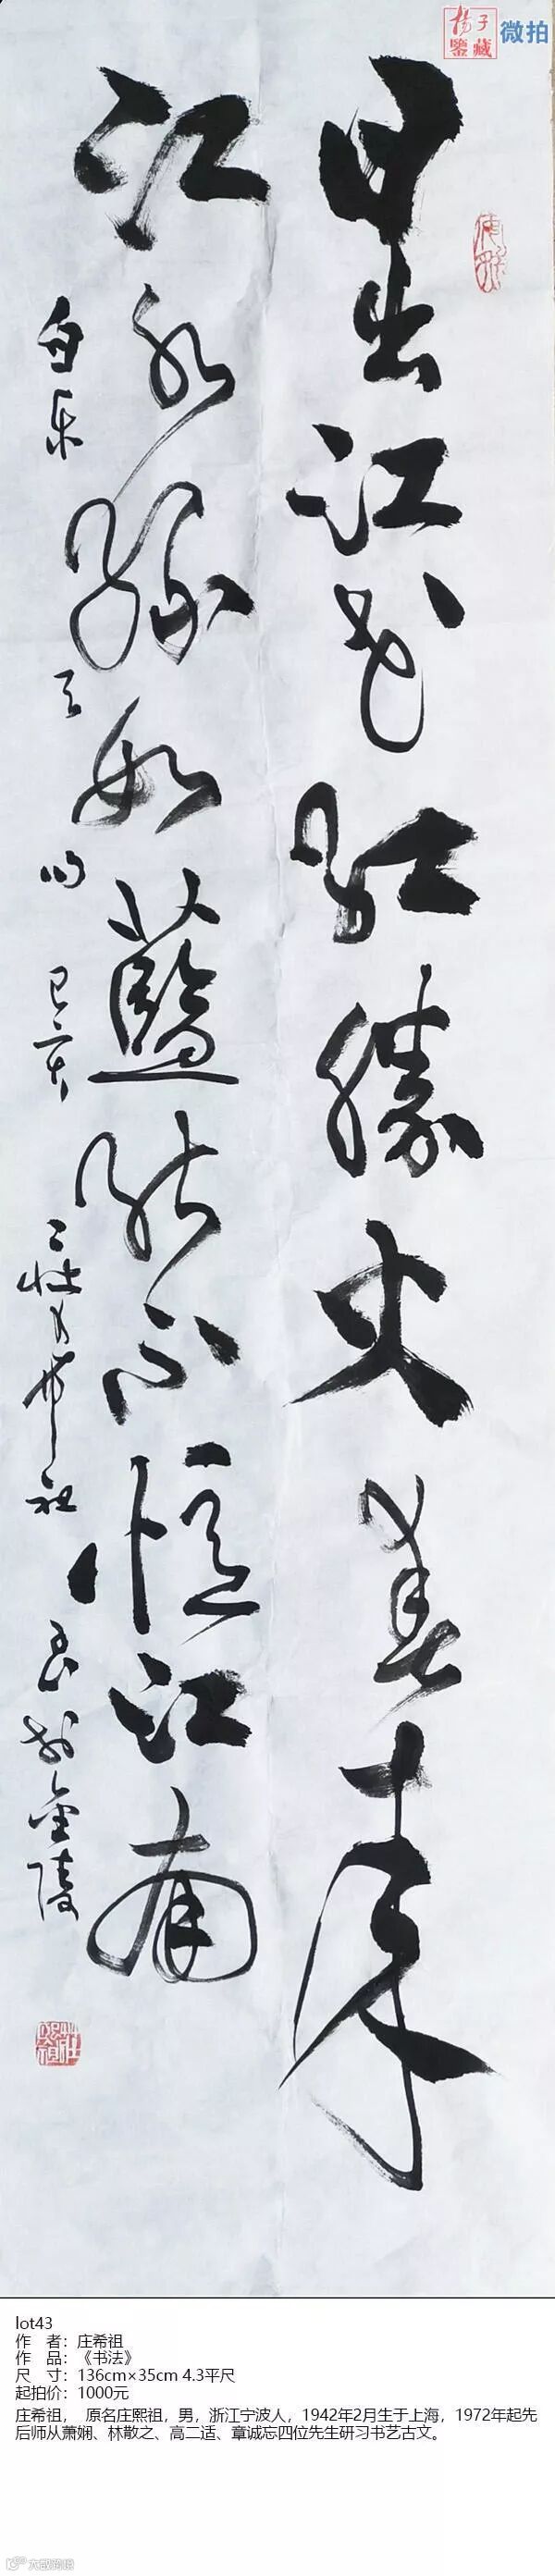 杨子
鉴藏
微拍
日出江花红胜火春来
江水绿如蓝能不忆江南
白乐天句己亥
庄希祖
书于金陵
lot43
作 者：庄希祖
作 品：《书法》
尺 寸：136cm×35cm 4.3平尺
起拍价：1000元
庄希祖， 原名庄熙祖，男，浙江宁波人，1942年2月生于上海，1972年起先
后师从萧娴、林散之、高二适、章诚忘四位先生研习书艺古文。